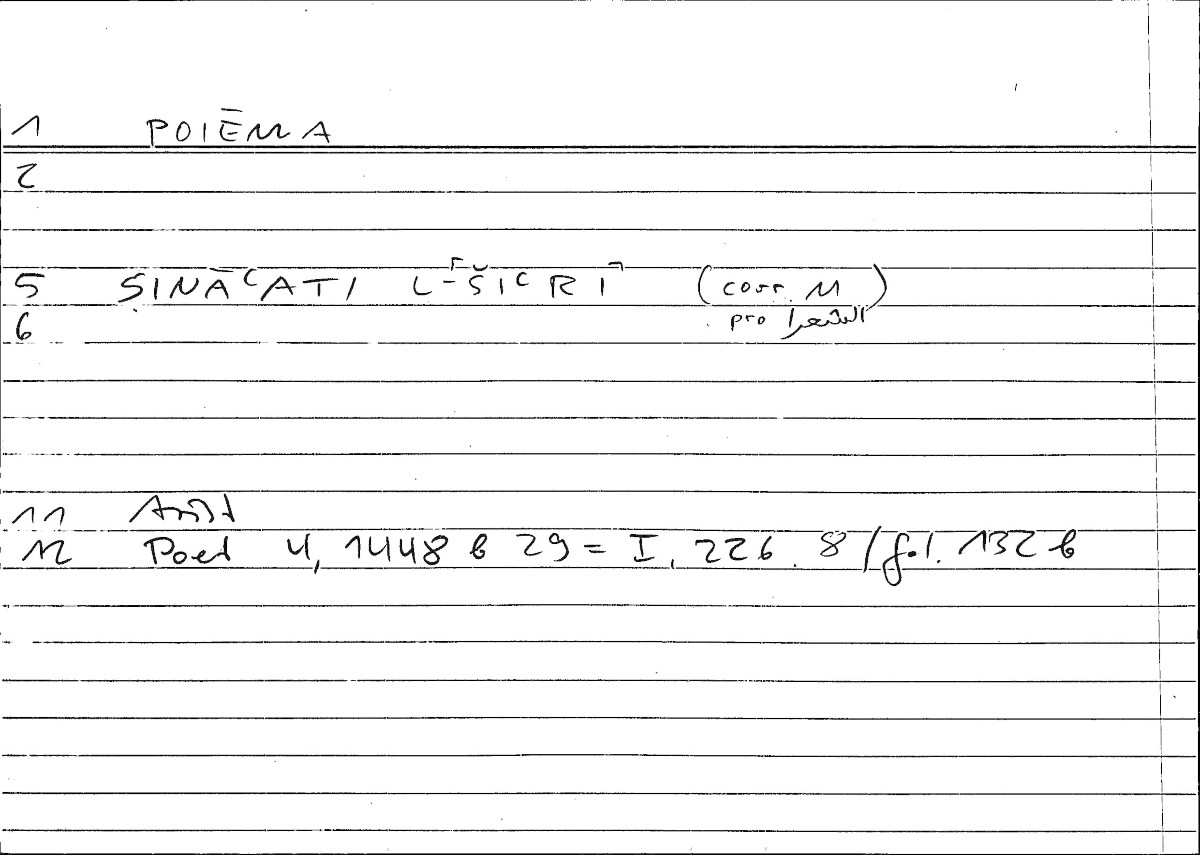 1 POIĒMA
2
5 ṢINĀʿATI L-⌈ŠIʿRI⌉ (corr. M)
6 pro الشعرا
11 Arist
12 Poet 4, 1448 b 29 = I, 226. 8 / fol. 132 b